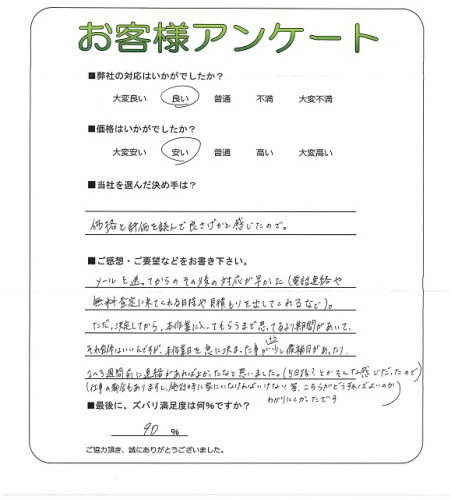 お客様アンケート
■弊社の対応はいかがでしたか？
大変良い 良い 普通 不満 大変不満
■価格はいかがでしたか？
大変安い 安い 普通 高い 大変高い
■当社を選んだ決め手は？
価格と評価を読んで良さげかと感じたので。
■ご感想・ご要望などをお書き下さい。
メールを送ってからのその後の対応が早かった（電話連絡や
無料査定に来てくれる日時や見積もりを出してくれるなど）。
ただ、決定してから、本作業に入ってもらうまで思ってるより期間があいて、
それ自体はいいんですが、本作業日を急に決まった事が少し
2〜3週間前に連絡があれば上かったなと思いました。（5日後！とかそんな感じだったので）
（仕事の都合もありますし、施設時に家にいなければいけない等、こちらがどうすればよいのか
わかりにくかったです
■最後に、ズバリ満足度は何％ですか？
90 %
ご協力頂き、誠にありがとうございました。